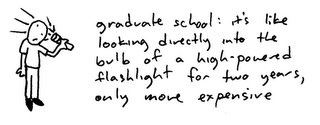 graduate school: it's like
looking directly into the
bulb of a high-powered
flashlight for two years,
only more expensive